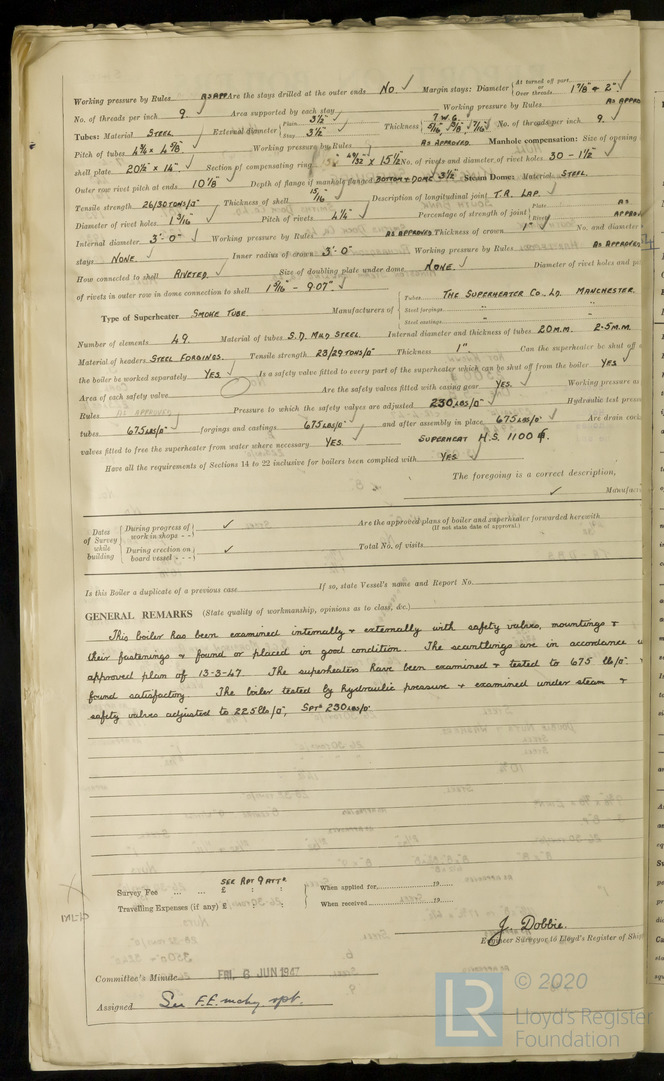 Working pressure by Rules AS APP Are the stays drilled at the outer ends No. ✓ Margin stays: Diameter { At turned off part, or Over threads 1 7/8" & 2" ✓
No. of threads per inch 9. ✓ Area supported by each stay ✓ Working pressure by Rules AS APPRO
Tubes: Material STEEL ✓ External diameter { Plain 3½" Stay 3½" ✓ Thickness { 7 W.G. 5/16", 3/8", 7/16" ✓ No. of threads per inch 9. ✓
Pitch of tubes 4¾ × 4 7/8" ✓ Working pressure by Rules AS APPROVED Manhole compensation: Size of opening
shell plate 20½" × 16" ✓ Section of compensating ring × 15½" No. of rivets and diameter of rivet holes 30 - 1½" ✓
Outer row rivet pitch at ends 10 7/8" ✓ Depth of flange if manhole flanged BOTTOM & DOME 3½" Steam Dome: Material STEEL.
Tensile strength 26/30 TONS/□" ✓ Thickness of shell 15/16" ✓ Description of longitudinal joint T.R. LAP. ✓
Diameter of rivet holes 1 3/16" ✓ Pitch of rivets 4¼" ✓ Percentage of strength of joint { Plate AS Rivet APPROV
Internal diameter 3'-0" ✓ Working pressure by Rules AS APPROVED Thickness of crown 1" ✓ No. and diameter
stays NONE. ✓ Inner radius of crown 3'-0" ✓ Working pressure by Rules AS APPROVED
How connected to shell RIVETED. ✓ Size of doubling plate under dome NONE. ✓ Diameter of rivet holes and pi
of rivets in outer row in dome connection to shell 1 5/16" - 9.07" ✓
Type of Superheater SMOKE TUBE. Manufacturers of { Tubes THE SUPERHEATER CO. LD. MANCHESTER.
Steel forgings "
Steel castings "
Number of elements 49. Material of tubes S.D. MILD STEEL. Internal diameter and thickness of tubes 20 M.M. 2·5 M.M
Material of headers STEEL FORGINGS. Tensile strength 23/29 TONS/□" Thickness 1" Can the superheater be shut off
the boiler be worked separately YES ✓ Is a safety valve fitted to every part of the superheater which can be shut off from the boiler YES
Area of each safety valve Are the safety valves fitted with easing gear YES. ✓ Working pressure as
Rules AS APPROVED Pressure to which the safety valves are adjusted 230 LBS/□" ✓ Hydraulic test press
tubes 675 LBS/□" ✓ forgings and castings 675 LBS/□" ✓ and after assembly in place 675 LBS/□" ✓ Are drain cock
valves fitted to free the superheater from water where necessary YES. SUPERHEAT H.S. 1100 ф.
Have all the requirements of Sections 14 to 22 inclusive for boilers been complied with YES ✓
The foregoing is a correct description,
✓ Manufac
Dates of Survey while building { During progress of work in shops - - ✓ Are the approved plans of boiler and superheater forwarded herewith
(If not state date of approval.)
During erection on board vessel - - - ✓ Total No. of visits
Is this Boiler a duplicate of a previous case If so, state Vessel's name and Report No.
GENERAL REMARKS (State quality of workmanship, opinions as to class, &c.)
This boiler has been examined internally & externally with safety valves, mountings &
their fastenings & found or placed in good condition. The scantlings are in accordance w
approved plan of 13-3-47. The superheaters have been examined & tested to 675 lbs/□" &
found satisfactory. The boiler tested by hydraulic pressure & examined under steam &
safety valves adjusted to 225 lbs/□", SPTR 230 LBS/□"
SEE RPT 9 ATTD
Survey Fee ... ... £ : : When applied for, 19
Travelling Expenses (if any) £ : : When received, 19
J. Dobbie.
Engineer Surveyor to Lloyd's Register of Ship
Committee's Minute FRI. 6 JUN 1947
Assigned See F.E. mchy rpt.
LR © 2020
Lloyd's Register
Foundation